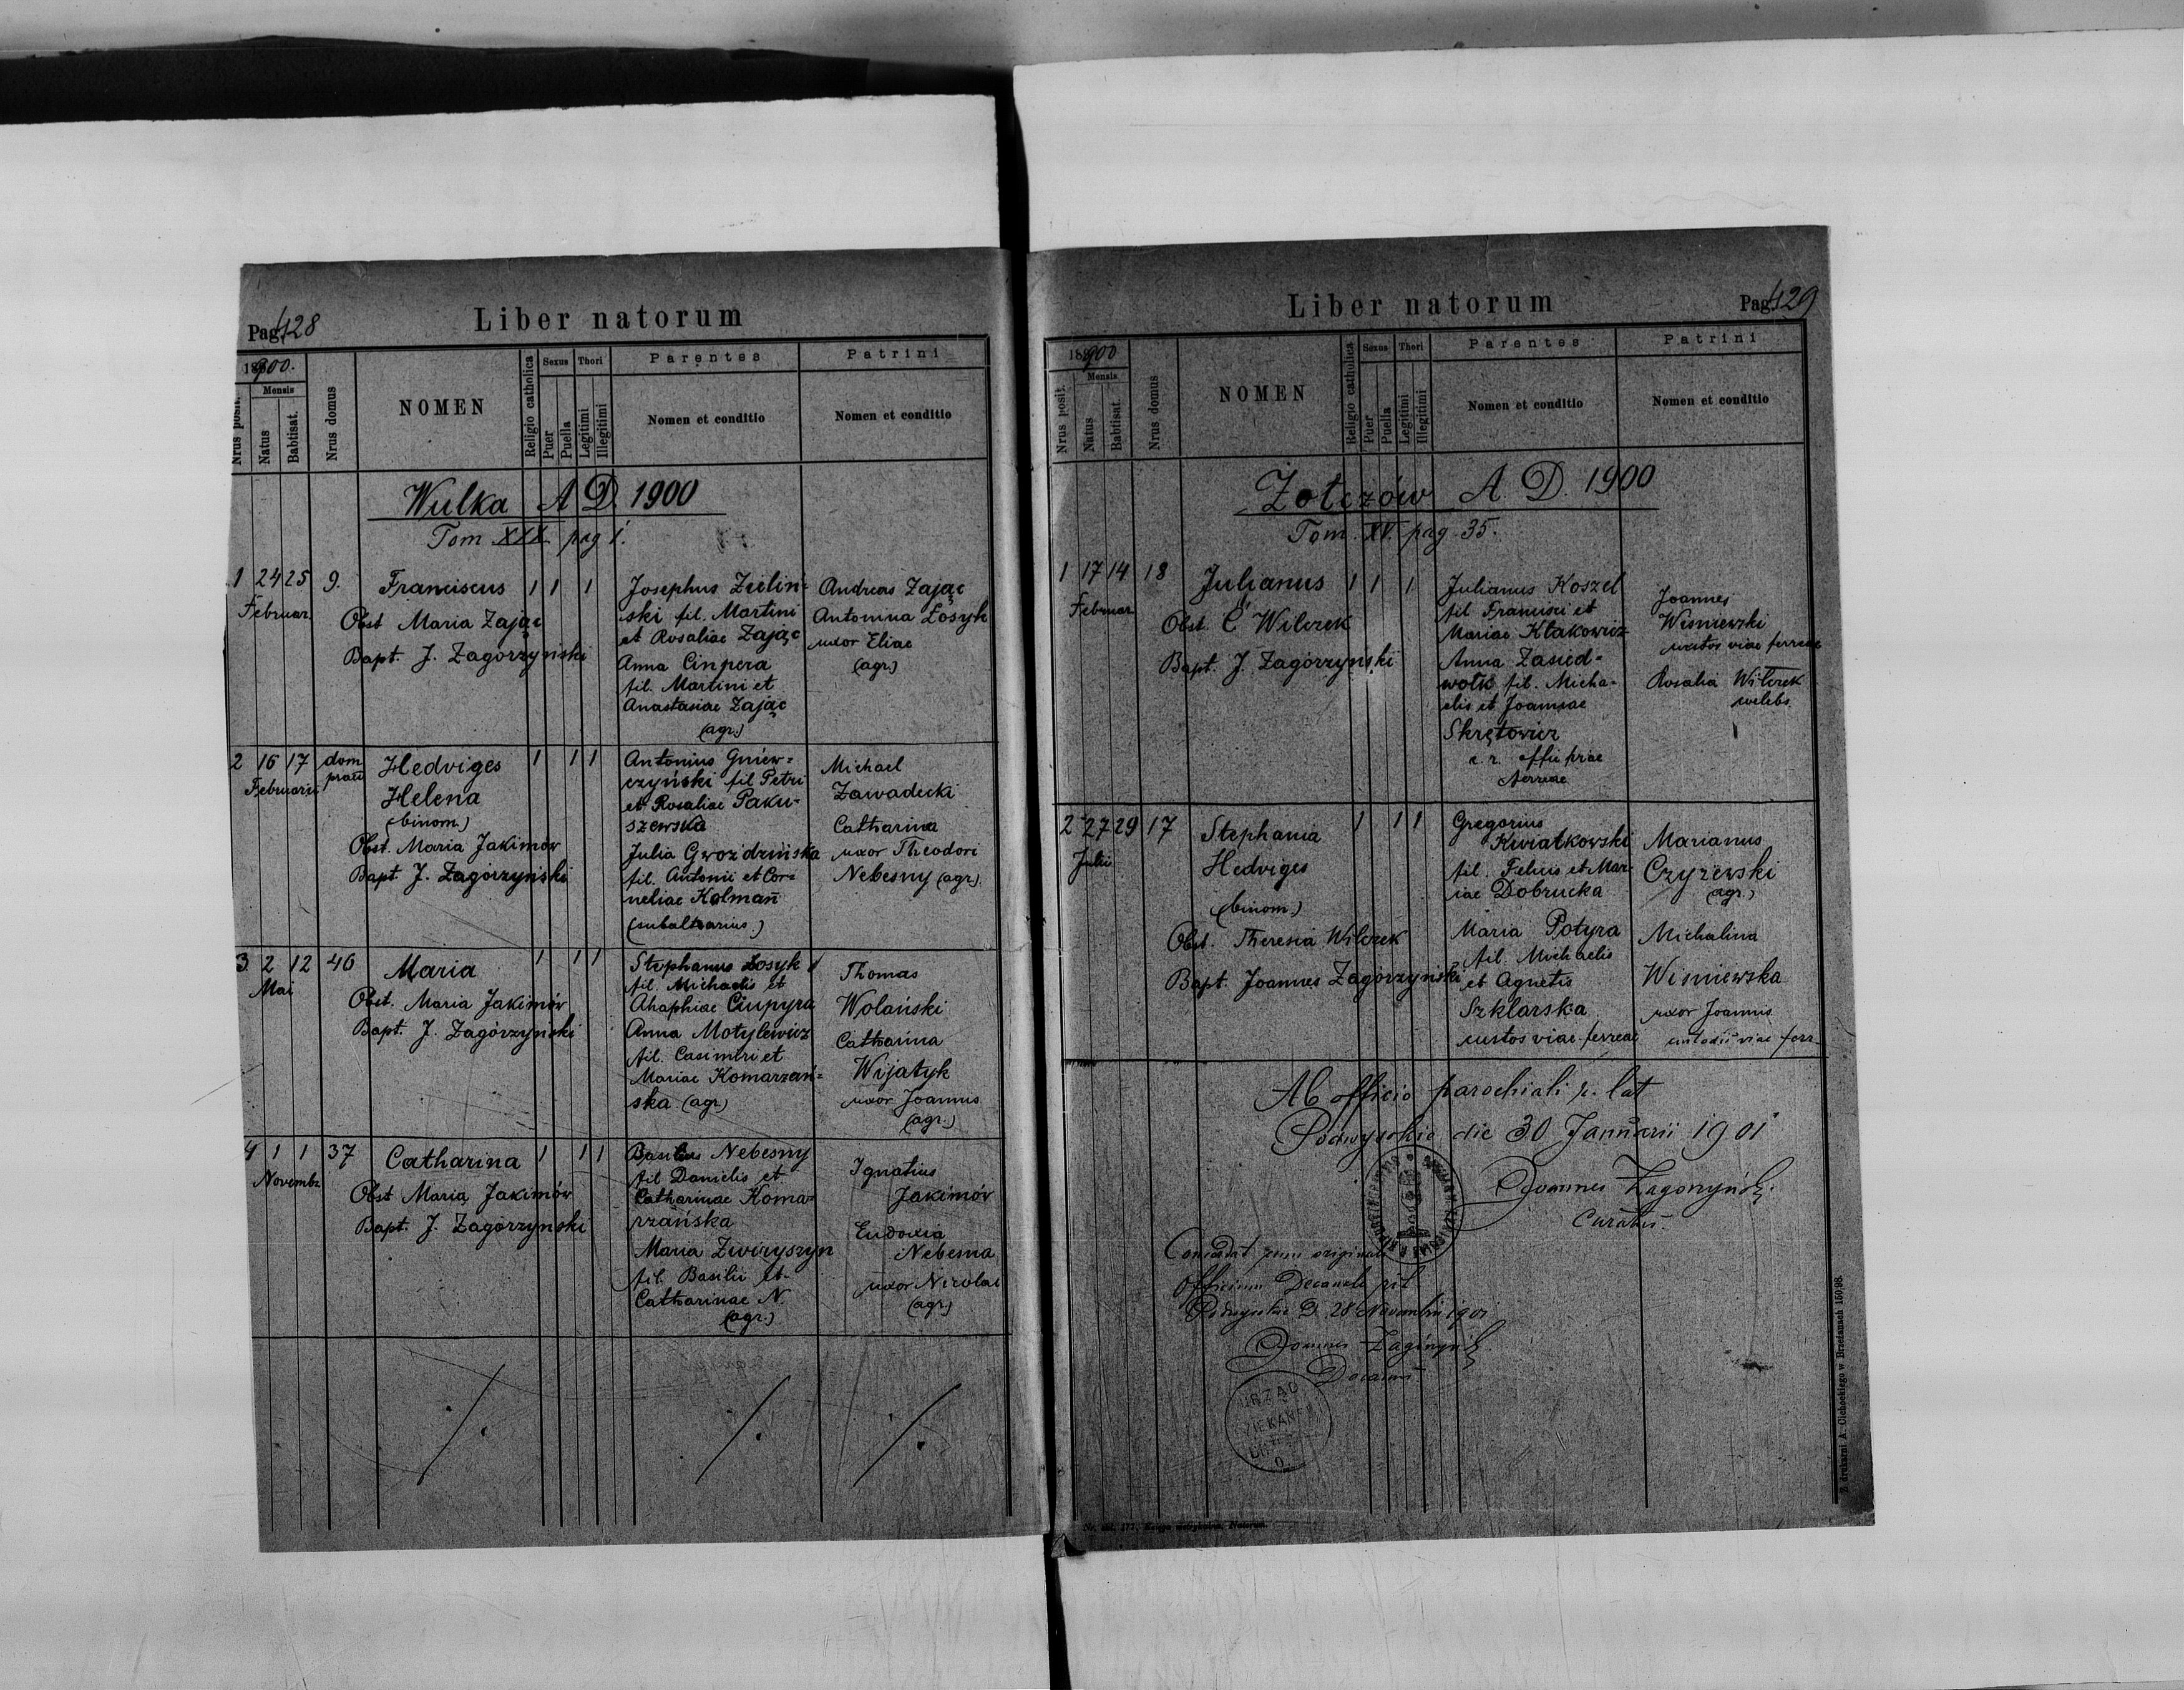 Pag. 428
Liber natorum
1900.
Nrus posit.
Mensis
Natus
Babtisat.
Nrus domus
NOMEN
Religio catholica
Sexus
Puer
Puella
Thori
Legitimi
Illegitimi
Parentes
Nomen et conditio
Patrini
Nomen et conditio
Wulka A D. 1900
Tom XXX pag 1.
1 24 25 9. Franciscus 1 1 1
Februar.
Obst Maria Zając
Bapt. J. Zagórzyński
Josephus Zieliń-
ski fil. Martini
et Rosaliae Zając
Anna Cinpera
fil. Martini et
Anastasiae Zając
(agr.)
Andreas Zając
Antonina Łosyk
uxor Eliae
(agr.)
2 16 17 dom Hedviges 1 1 1
Februarii
Helena
(binom.)
Obst. Maria Jakimów
Bapt J. Zagórzyński
Antonius Gniew-
czyński fil Petri
et Rosaliae Paku-
szewska
Julia Gwoździńska
fil. Antonii et Cor-
neliae Kolmań
Michael
Zawadecki
Catharina
uxor Theodori
Nebesny (agr.)
3 2 12 46 Maria 1 1 1
Mai
Obst. Maria Jakimów
Bapt. J. Zagórzyński
Stephanus Łosyk
fil. Michaelis et
Ahaphiae Ciupyra
Anna Motylewicz
fil. Casimiri et
Mariae Komarzań-
ska (agr)
Thomas
Wolański
Catharina
Wijatyk
uxor Joannis
(agr.)
4 1 1 37 Catharina 1 1 1
Novembr.
Obst Maria Jakimów
Bapt. J. Zagórzyński
Basilius Nebesny
fil Danielis et
Catharinae Koma-
rzańska
Maria Zwiryszyn
fil. Basilii et
Catharinae N.
(agr.)
Ignatius
Jakimów
Eudoxia
Nebesna
uxor Nicolai
(agr)
Liber natorum
Pag. 429
1900
Nrus posit.
Mensis
Natus
Babtisat.
Nrus domus
NOMEN
Religio catholica
Sexus
Puer
Puella
Thori
Legitimi
Illegitimi
Parentes
Nomen et conditio
Patrini
Nomen et conditio
Żołczów A. D. 1900
Tom. XV. pag. 35.
1 17 14 18 Julianus 1 1 1
Februar
Obst. Wilczek
Bapt. J. Zagórzyński
Julianus Koszel
fil Francisci et
Mariae Kłakowicz
Anna Zasied-
wołk fil. Micha-
elis et Joannae
Skrętowicz
Joannes
Wiśniewski
custos viae ferreae
Rosalia Wilczek
coelebs
2 27 29 17 Stephania 1 1 1
Julii
Hedviges
(binom.)
Obst. Theresia Wilczek
Bapt. Joannes Zagórzyński
Gregorius
Kwiatkowski
fil. Felicis et Mar-
iae Dobrucka
Maria Potyra
fil. Michaelis
et Agnetis
Szklarska
custos viae ferreae
Marianus
Czyżewski
(agr.)
Michalina
Wiśniewska
uxor Joannis
custodis viae ferr
Ab officio parochiali r. lat
Podwysokie die 30 Januarii 1901
Joannes Zagórzyński
Curatus.
Concordat cum originali
Officium Decanale rit
D. 28 Novembris 1901
Joannes Zagórzyński
Decanus
URZĄD
Z drukarni A. Cichockiego w Brzeżanach 150|98.